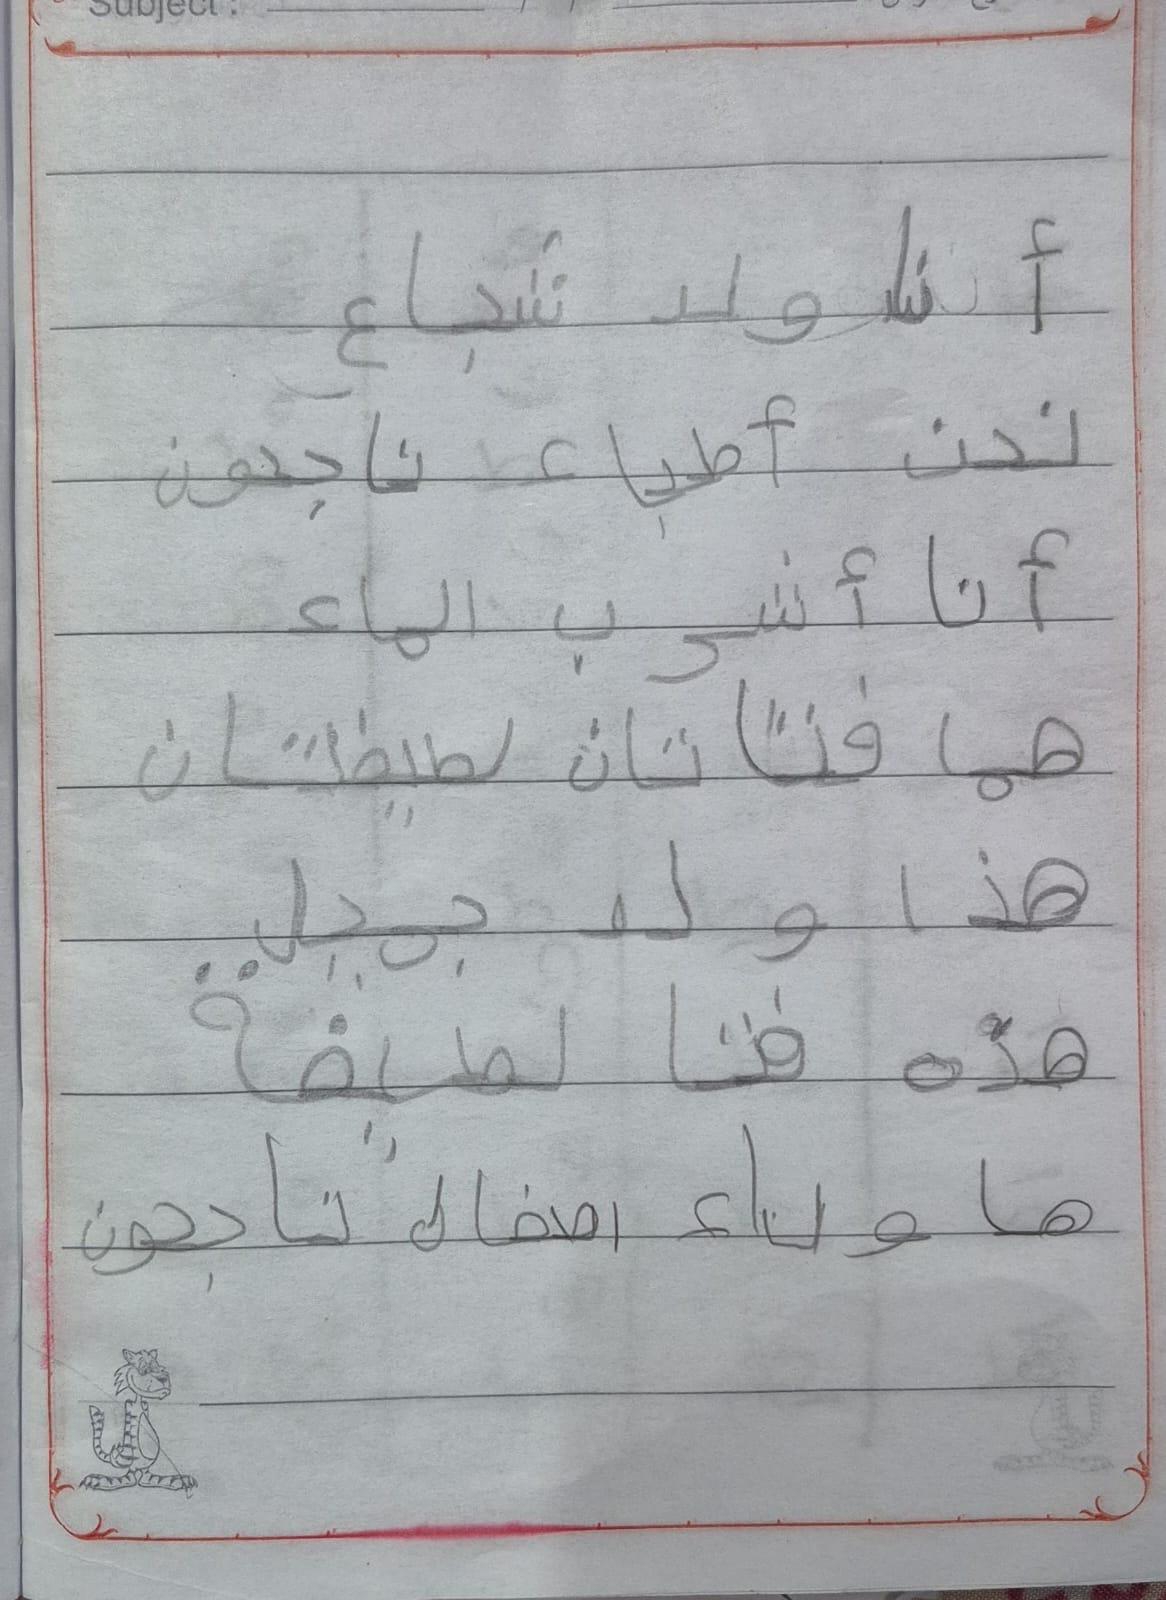 Subject :
أنا ولد شجاع
نحن أطباء ناجحون
أنا أشرب الماء
هما فتاتان لطيفتان
هذا ولد جميل
هذه فتا لطيفة
ها ولاء اصفال ناجحون